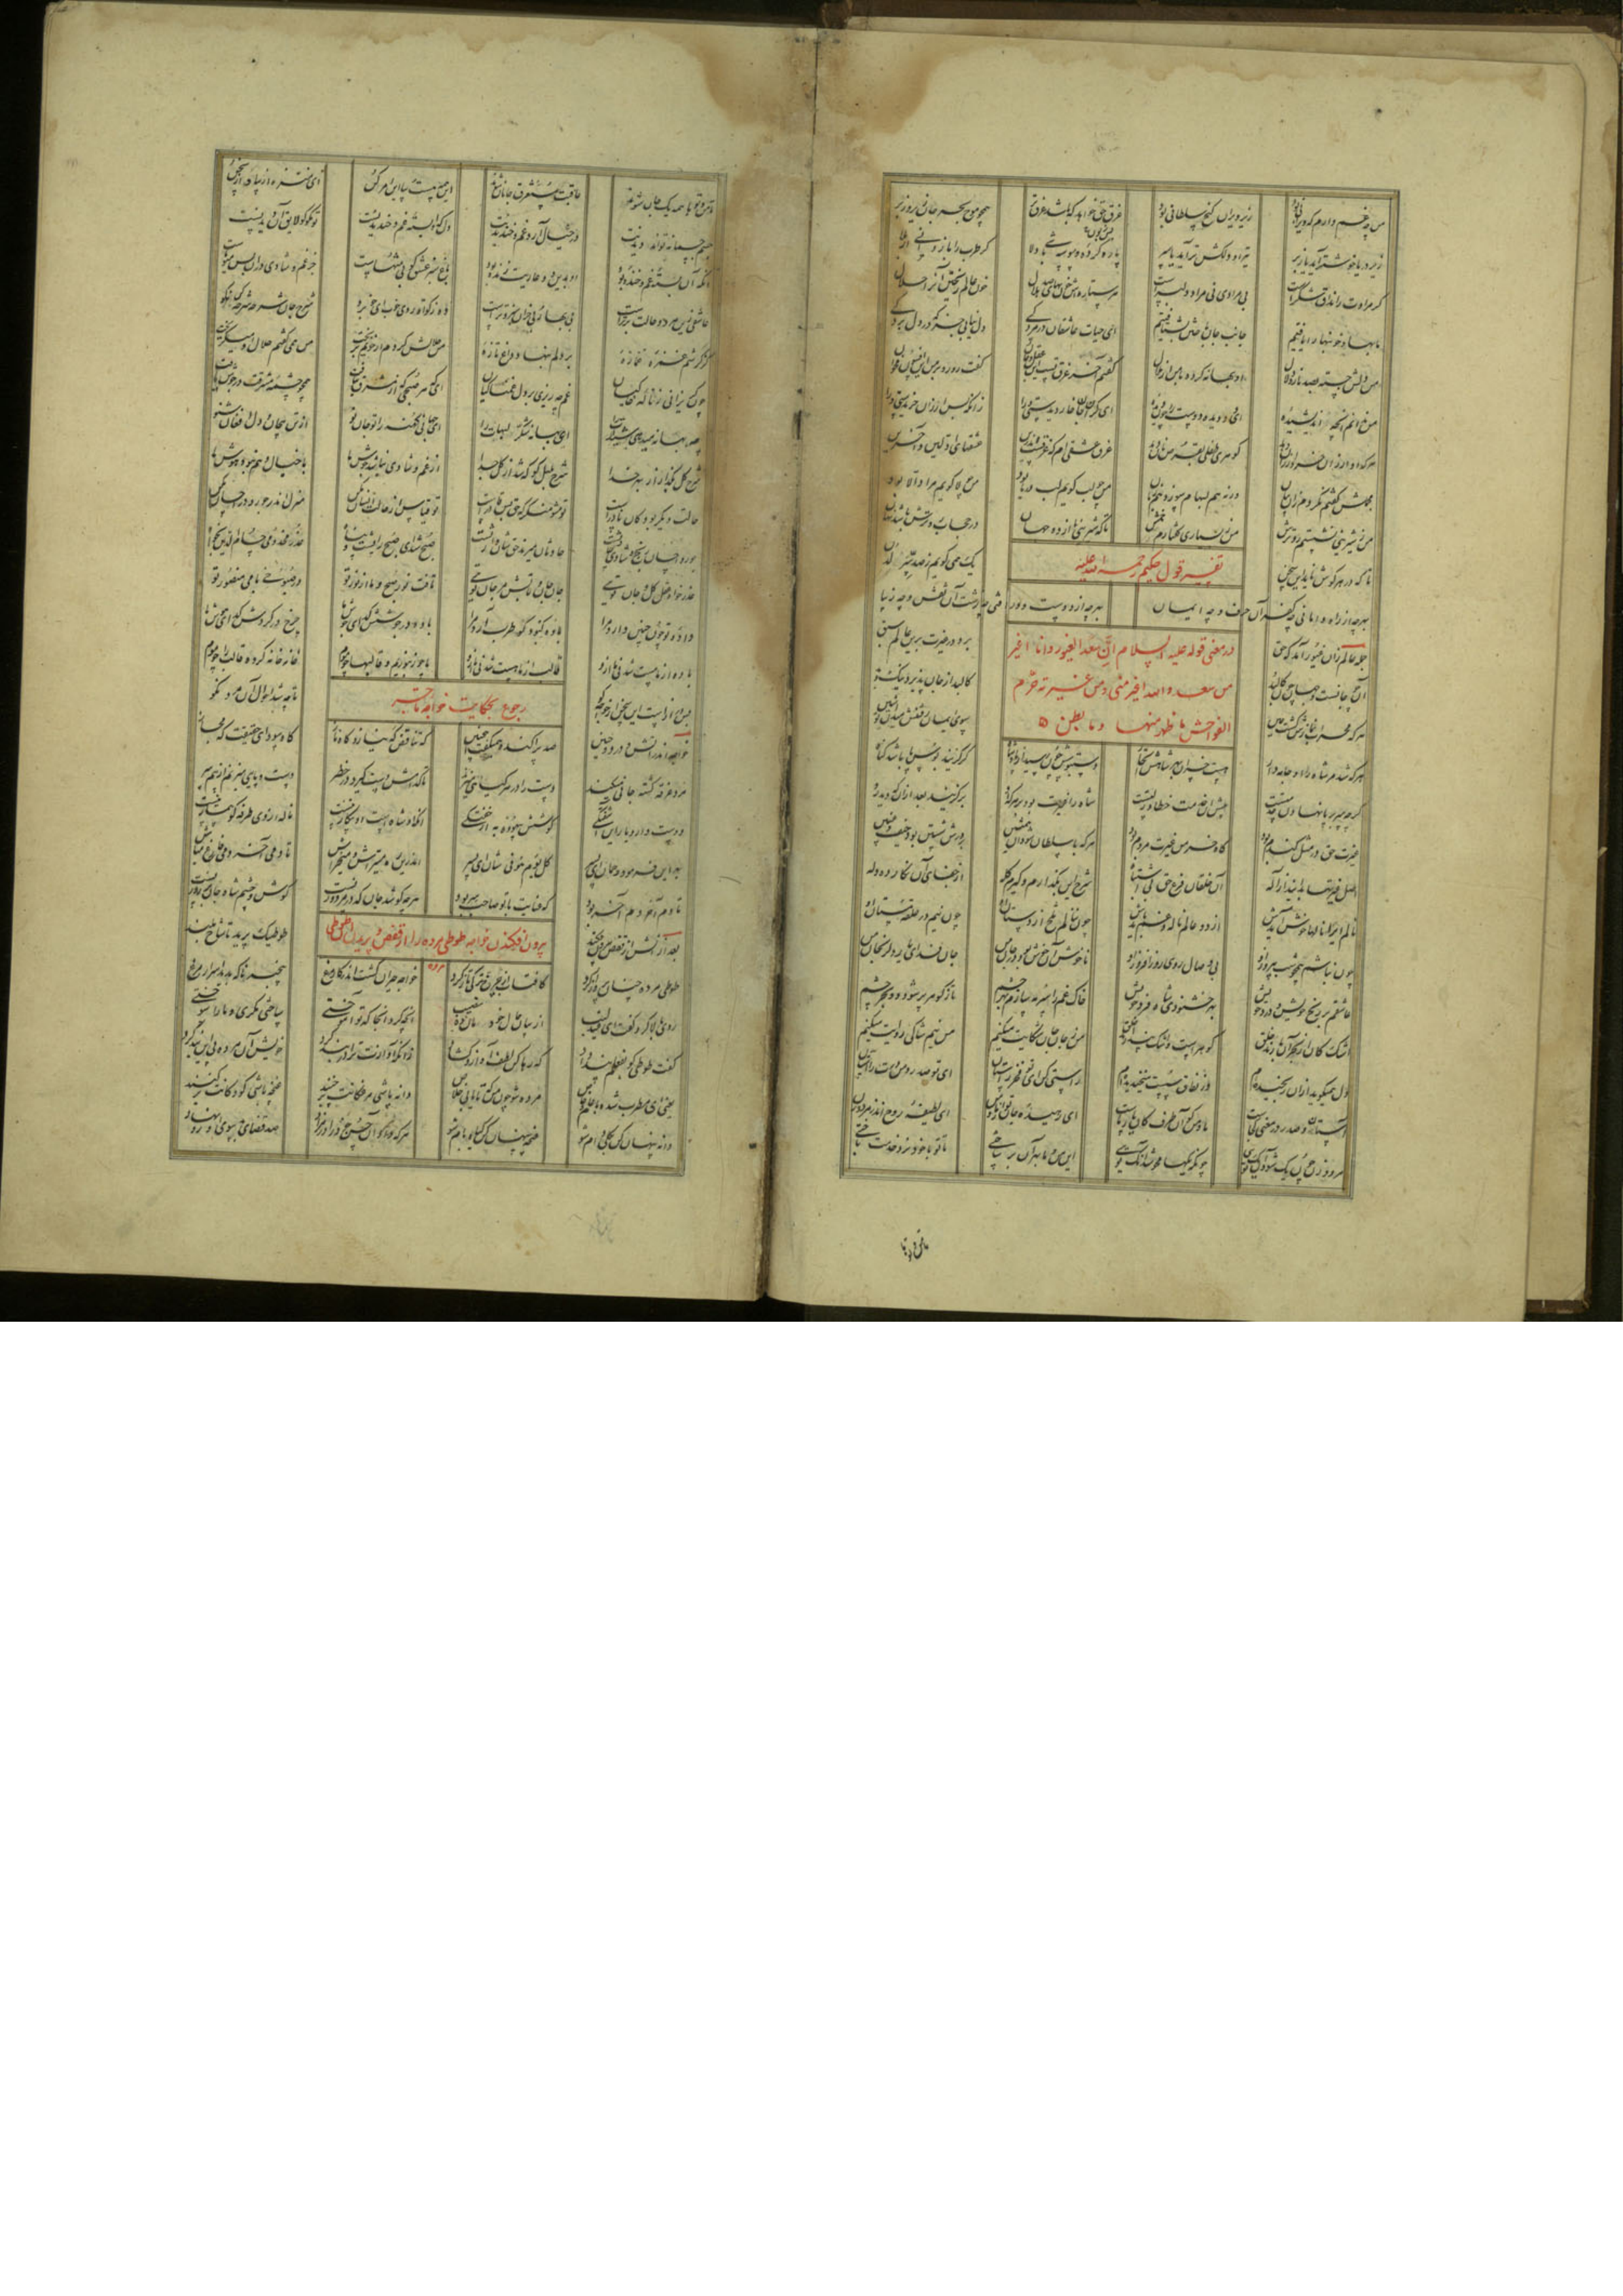 من چه غم دارم که ویرانی بود زیر ویران گنج سلطانی بود غرق حق خواهد که باشد غرق تر همچو موج بحر جان زیر و زبر
زیر دریا خوشتر آید یا زبر تیر او دلکش تر آید یا سپر پاره کرده وسوسه باشی دلا گر طرب را باز دانی از بلا
گر مرادت را مذاق شکرست بی مرادی نی مراد دلبرست هر ستاره اش خونبهای صد هلال خون عالم ریختن او را حلال
ما بها و خونبها را یافتیم جانب جان باختن بشتافتیم ای حیات عاشقان در مردگی دل نیابی جز که در دل بردگی
من دلش جسته بصد ناز و دلال او بهانه کرده با من از ملال گفتم آخر غرق تست این عقل و جان گفت رو رو بر من این افسون مخوان
من ندانم آنچه اندیشیده ای دو دیده دوست را چون دیده ای گرانجان خوار دیدستی مرا زانکه بس ارزان خریدستی مرا
هرکه او ارزان خرد ارزان دهد گوهری طفلی بقرص نان دهد غرق عشقی ام که غرقست اندرین عشقهای اولین و آخرین
مجملش گفتم نکردم زان بیان ورنه هم لبها بسوزد هم زبان من چو لب گویم لب دریا بود من چو لا گویم مراد الا بود
من ز شیرینی نشستم رو ترش من ز بسیاری گفتارم خمش تا که شیرینی ما از دو جهان در حجاب رو ترش باشد نهان
تا که در هر گوش ناید این سخن یک همی گویم ز صد سر لدن
تفسیر قول حکیم رحمة الله علیه
بهرچه از راه وا مانی چه کفر آن حرف و چه ایمان بهرچه از دوست دور افتی چه زشت آن نقش و چه زیبا
در معنی قوله علیه السلام ان سعدا لغیور وانا اغیر
من سعد و الله اغیر منی و من غیرته حرم
الفواحش ما ظهر منها و ما بطن
جمله عالم زان غیور آمد که حق برد در غیرت برین عالم سبق
او چو جانست و جهان چون کالبد کالبد از جان پذیرد نیک و بد
هرکه محراب نمازش گشت عین سوی ایمان رفتنش میدان تو شین
هرکه شد مر شاه را او جامه دار هست خسران بهر شاهش اتجار دستبوسش چون رسید از پادشاه گر گزیند بوس پا باشد گناه
گرچه سر بر پا نهادن خدمتست پیش آن خدمت خطا و زلتست شاه را غیرت بود بر هرکه او بو گزیند بعد از آن که دید رو
غیرت حق بر مثل گندم بود کاه خرمن غیرت مردم بود هرکه با سلطان شود او همنشین بر درش شستن بود حیف و غبین
اصل غیرتها بدانید از اله آن خلقان فرع حق بی اشتباه شرح این بگذارم و گیرم گله از جفای آن نگار ده دله
نالم ایرا نالها خوش آیدش از دو عالم ناله و غم بایدش چون ننالم تلخ از دستان او چون نیم در حلقه مستان او
چون نباشم همچو شب بی روز او بی وصال روی روز افروز او ناخوش او خوش بود در جان من جان فدای یار دل رنجان من
عاشقم بر رنج خویش و درد خویش بهر خشنودی شاه فرد خویش خاک غم را سرمه سازم بهر چشم تا ز گوهر پر شود دو بحر چشم
اشک کان از بهر او بارند خلق گوهرست و اشک پندارند خلق من ز جان جان شکایت میکنم من نیم شاکی روایت میکنم
دل همیگوید ازو رنجیده ام وز نفاق سست میخندیده ام راستی کن ای تو فخر راستان ای تو صدر و من درت را آستان
آستان و صدر در معنی کجاست ما و من کو آن طرف کان یار ماست ای رهیده جان تو از ما و من ای لطیفه روح اندر مرد و زن
مرد و زن چون یک شود آن یک توی چونکه یکها محو شد آنک توی این من و ما بهر آن بر ساختی تا تو با خود نرد خدمت باختی
تا من و توها
تا من و توها همه یک جان شوند عاقبت مستغرق جانان شوند این همه هست و بیا ای امر کن ای منزه از بیا و از سخن
جسم جسمانه تواند دیدنت در خیال آرد غم و خندیدنت دل که او بسته غم و خندیدنست تو مگو کو لایق آن دیدنست
آنکه او بسته غم و خنده بود او بدین دو عاریت زنده بود باغ سبز عشق کو بی منتهاست جز غم و شادی درو بس میوهاست
عاشقی زین هر دو حالت برترست بی بهار و بی خزان سبز و ترست ده زکوة روی خوب ای خوبرو شرح جان شرحه شرحه بازگو
کز کرشم غمزه غمازه بر دلم بنهاد داغ تازه من حلالش کردم ار خونم بریخت من همی گفتم حلال او میگریخت
چون گریزانی ز ناله خاکیان غم چه ریزی بر دل غمناکیان ای که هر صبحی که از مشرق بتافت همچو چشمه مشرقت در جوش یافت
چه بهانه میدهی شیدات را ای بها نه شکر لبهات را ای جهان کهنه را تو جان نو از تن بی جان و دل افغان شنو
شرح گل بگذار از بهر خدا شرح بلبل گو که شد از گل جدا از غم و شادی نباشد جوش ما با خیال و وهم نبود هوش ما
حالت دیگر بود کان نادرست تو مشو منکر که حق بس قادرست تو قیاس از حالت انسان مکن منزل اندر جور و در احسان مکن
جور و احسان رنج و شادی حادثست حادثان میرند حقشان وارثست صبح شد ای صبح را پشت و پناه عذر مخدومی حسام الدین بخواه
عذر خواه عقل کل و جان توی جان جان و تابش مرجان توی تافت نور صبح و ما از نور تو در صبوحی با می منصور تو
داده تو چون چنین دارد مرا باده کبود کو طرب آرد مرا باده در جوشش گدای جوش ما چرخ در گردش گدای هوش ما
باده از ما مست شد نی ما ازو قالب از ما هست شد نی ما ازو ما چو زنبوریم و قالبها چو موم خانه خانه کرده قالب را چو موم
رجوع بحکایت خواجه تاجر
بس درازست این سخن از خواجه گو تا چه شد احوال آن مرد نکو
خواجه اندر آتش و درد و حنین صد پراکنده همیگفت اینچنین که تناقض گه نیاز و گاه ناز گاه سودای حقیقت گه مجاز
مرد غرقه گشته جانی میکند دست را در هر گیاهی میزند تا کدامش دست گیرد در خطر دست و پایی میزند از بیم سر
دوست دارد یار این آشفتگی کوشش بیهوده به از خفتگی آنکه او شاهست او بیکار نیست ناله از وی طرفه کو بیمار نیست
بهر این فرمود رحمان ای پسر کل یوم هو فی شان ای پسر اندرین ره میتراش و میخراش تا دم آخر دمی فارغ مباش
تا دم آخر دمی آخر بود که عنایت با تو صاحب سر بود هرچه کوشد جان که در مرد و زنست گوش و چشم شاه جان بر روزنست
بیرون افکندن خواجه طوطی مرده را از قفص و پریدن طوطی
بعد از آنش از قفص بیرون فکند طوطیک پرید تا شاخ بلند
طوطی مرده چنان پرواز کرد کافتاب از چرخ ترکی تاز کرد خواجه حیران گشت اندر کار مرغ بیخبر ناگه بدید اسرار مرغ
روی بالا کرد و گفت ای عندلیب از بیان حال خود مان ده نصیب او چه کرد آنجا که تو آموختی ساختی مکری و ما را سوختی
گفت طوطی کو بفعلم پند داد که رها کن لطف آواز و گشاد زانکه آوازت ترا در بند کرد خویش او مرده پی این پند کرد
یعنی ای مطرب شده با عام و خاص مرده شو چون من که تا یابی خلاص دانه باشی مرغکانت بر چنند غنچه باشی کودکانت بر کنند
دانه پنهان کن بکلی دام شو غنچه پنهان کن گیاه بام شو هرکه داد او حسن خود را در مزاد صد قضای بد سوی او رو نهاد